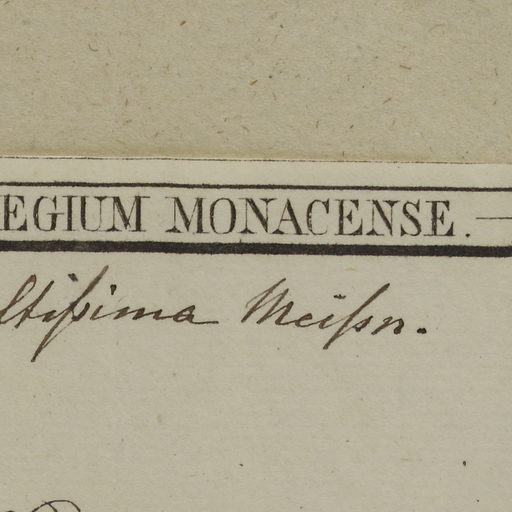 EGIUM MONACENSE.
ltiſsima Meiſsn.